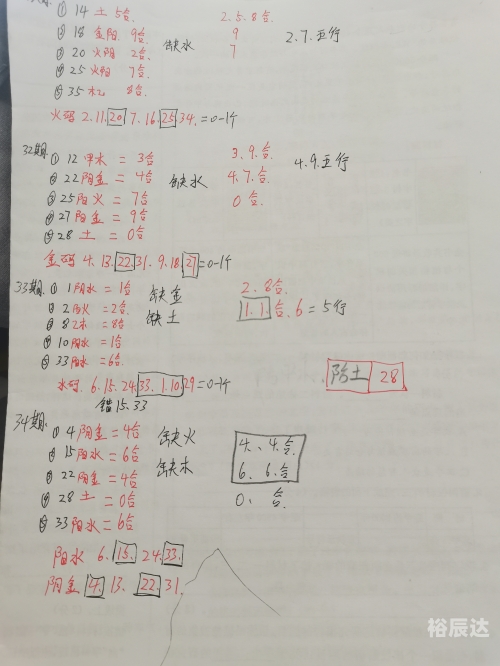 ① 14 土 5合 2.5.8合
② 18 金阳 9合 9
③ 20 火阳 2合 缺水 7 2.7.五行
④ 25 火阳 7合
⑤ 35 木乙 8合
火码 2.11.20 7.16.25 34.=0-1个
32期. ① 12 甲木 = 3合 3.9.合
② 22 阳金 = 4合 缺水 4.7.合 4.9.五行
③ 25 阳火 = 7合 0合.
④ 27 阳金 = 9合
⑤ 28 土 = 0合
金码 4.13.22.31.9.18.27=0-1个
33期. ① 1 阳水 = 1合 缺金 2.8合
② 2 阳火 =2合 缺土 1.1.合.6=5行
③ 8 乙木 =8合
④ 10 阳水 =1合
⑤ 33 阳水 =6合
防土 28
水码 6.15.24.33.1.10.29=0-1个
错 15.33
34期. ① 4 阳金 =4合 缺火 4.、4.合
② 15 阳水 =6合 缺木 6.、6.合
③ 22 阳金 =4合
④ 28 土 =0合 0、合.
⑤ 33 阳水 =6合
阳水 6.15.24.33.
阳金 4.13.22.31.
裕辰达